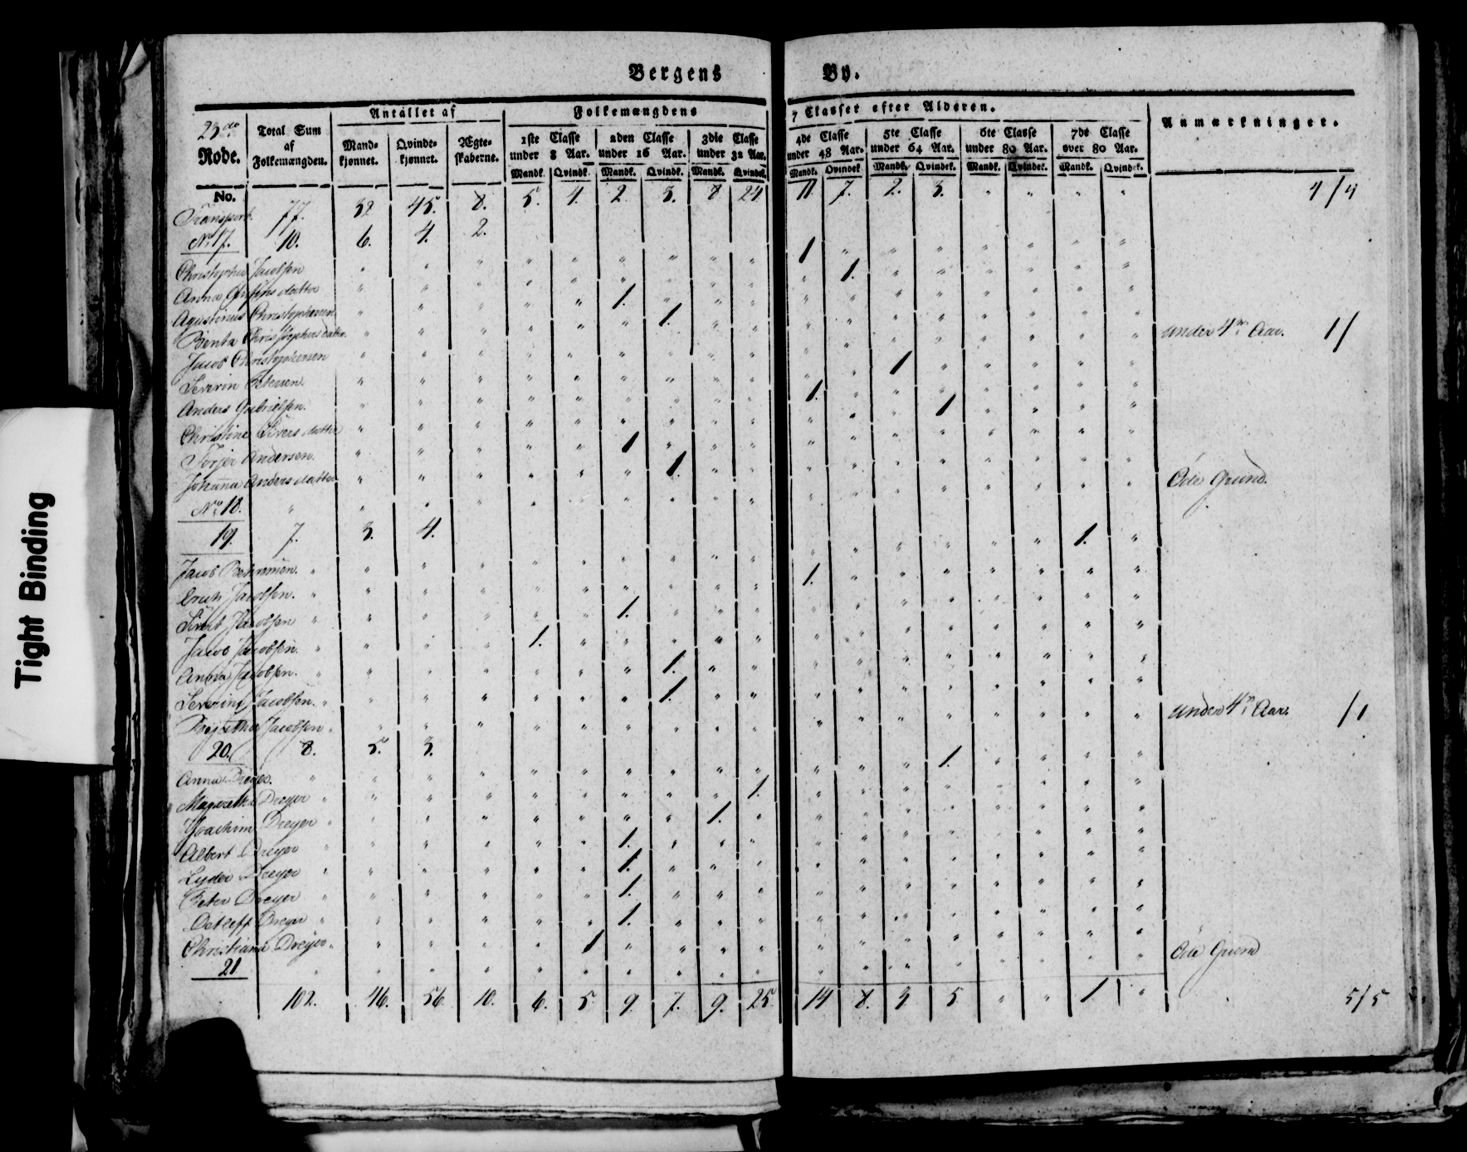 Bergens By.
23de Rode.
Total Sum af Folkemængden.
Antallet af
Mandkjønnet. Qvindekjønnet. Ægteskaberne.
Folkemængdens 7 Classer efter Alderen.
1ste Classe under 8 Aar. 2den Classe under 16 Aar. 3die Classe under 32 Aar. 4de Classe under 48 Aar. 5te Classe under 64 Aar. 6te Classe under 80 Aar. 7de Classe over 80 Aar.
Mandk. Qvindk. Mandk. Qvindk. Mandk. Qvindek. Mandk. Qvindek. Mandk. Qvindek. Mandk. Qvindek. Mandk. Qvindek.
Anmærkninger.
No.
Transport. 77. 32 45. 8. 5. 4. 2. 3. 8 24 11 7. 2. 3. " " " " 4/4
No 17. 10. 6. 4. 2.
Christopher Jacobsen 1
Anna datter 1.
Agustinus Christophersen 1.
Benta Christophers datter 1.
Jacob Christophersen under 4re Aar. 1/
Severin Petersen 1
Anders Gabrielsen. 1.
Christine Sivers datter 1
Torjer Andersen. 1
Johanna Anders datter 1.
No 18. " " " Øde Grund.
19. 7. 3. 4.
Jacob 1.
Jacobsen. 1.
Sivert Jacobsen 1.
Jacob Jacobsen. 1.
Anna Jacobsen. 1.
Severine Jacobsen. 1
Jacobsen under 4re Aar. /1
20. 8. 5. 3.
Anna 1.
Magrethe Dreyer 1.
Joachim Dreyer 1.
Albert Dreyer 1.
Lyder Dreyer 1.
Peter Dreyer 1.
Detleff Dreyer 1.
Christiana Dreyer 1
21 Øde Grund
102. 46. 56 10. 6. 5 9. 7. 9. 25. 14 8. 3 5 " " 1 " 5/5
Tight Binding